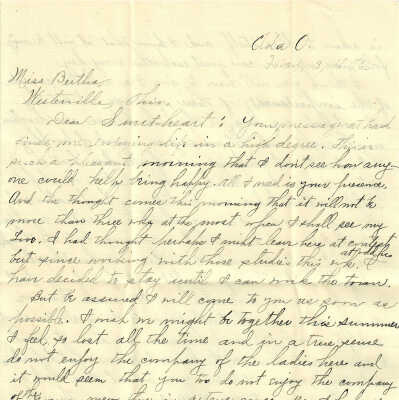 Ada O.
Miss Bertha
Westerville, Ohio.
Dear Sweetheart: Your message at hand
finds me enjoying life in a high degree.
such a pleasant morning that I don't see how any-
one could help being happy. All I need is your presence.
And the thought comes this morning that it will not be
more than three wks at the most when I shall see my
love. I had thought perhaps I might leave here at
but since working with those studies this wk. I
have decided to stay until I can work the town.
But be assured I will come to you as soon as
possible. I wish we might be together this summer
I feel so lost all the time and in a true sense
do not enjoy the company of the ladies here and
it would seem that you too do not enjoy the company
of the young men